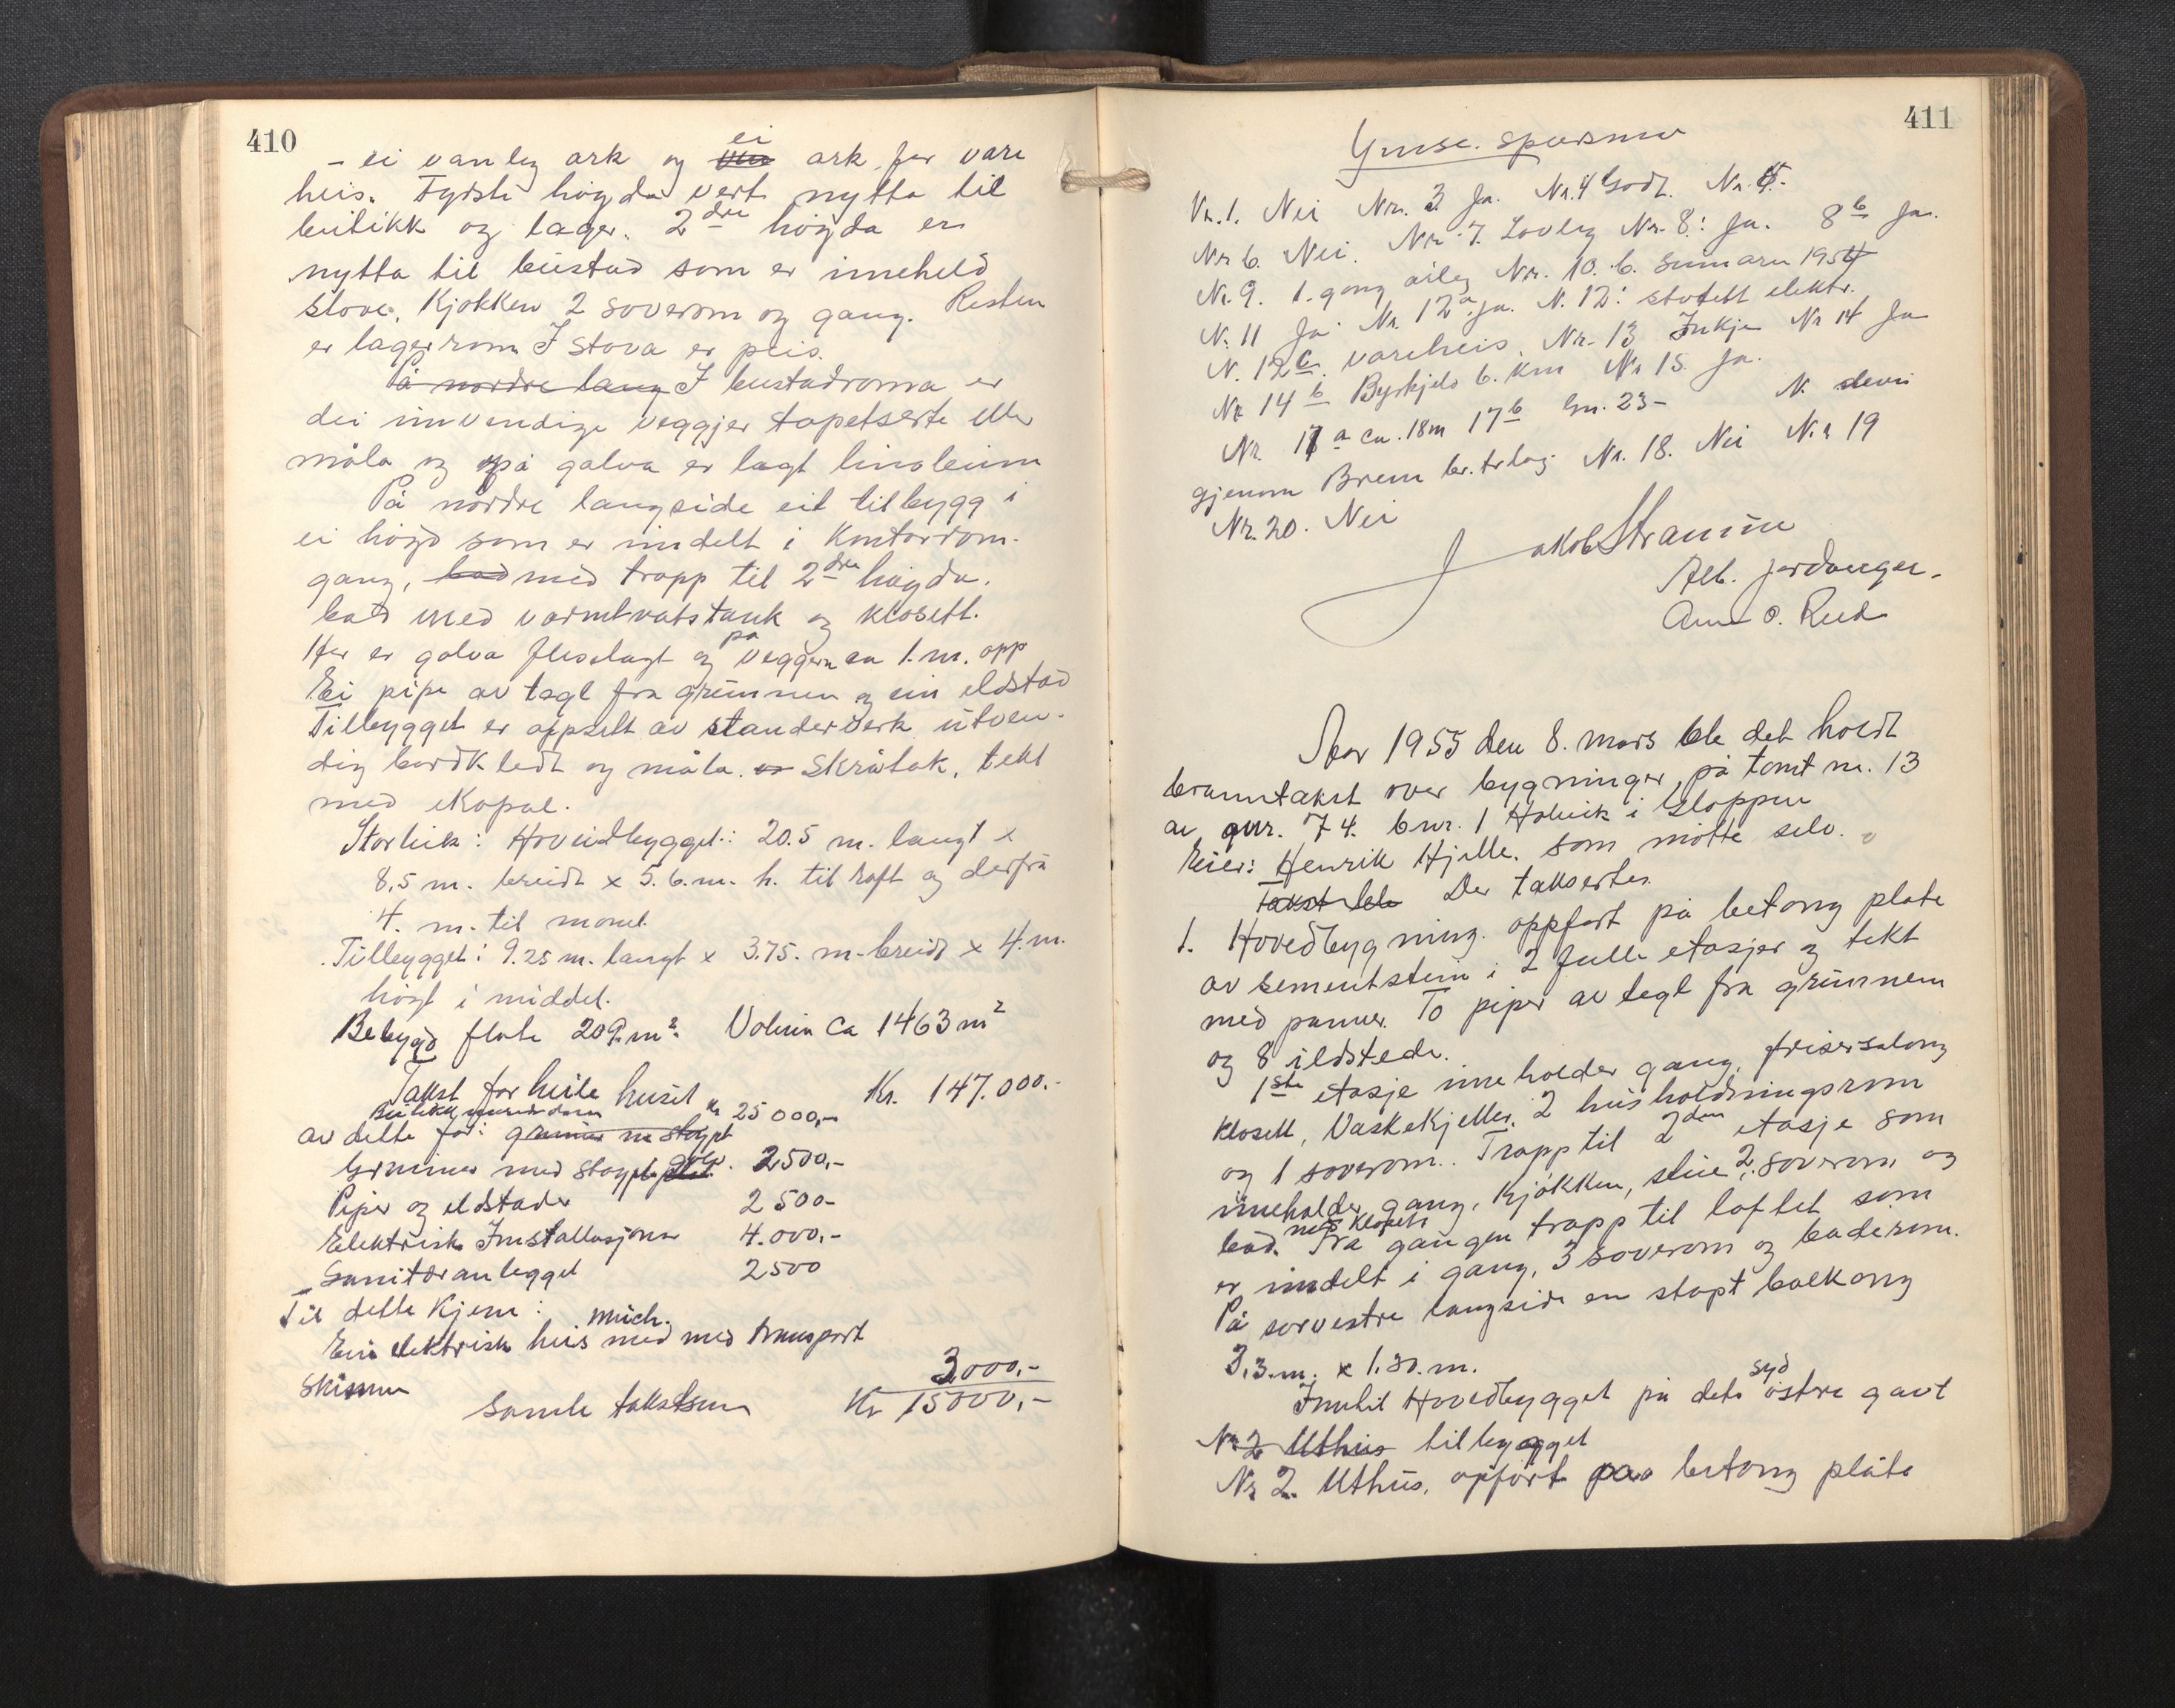 410
- ei vanleg ark og ei ark for vare
heis. Fyrste høgda vert nytta til
butikk og lager. 2dre høgda er
nytta til bustad som er inneheld
stove, Kjøkken 2 soverom og gang. Resten
er lagerrom I stova er peis.
På nordre lang I bustadroma er
dei innvendige veggjer tapetserte eller
måla og på golva er lagt linoleum
På nordre langside eit tilbygg i
ei høgd som er inndelt i Kontorrom.
gang, bad med trapp til 2dre høgda.
bad med varmtvatstank og klosett.
Her er golva fliselagt og på veggern ca 1. m. opp
Ei pipe av tegl fra grunnen og ein eldstad
Tilbygget er oppsett av standerverk utven-
dig bordkledt og måla. Skråtak, tekt
med ekopal.
Storleik: Hovudbygget: 20.5 m. langt x
8,5 m. breidt x 5.6. m. h. til raft og derfra
4. m. til mønet.
Tilbygget: 9.25 m. langt x 3.75. m. breidt x 4. m.
høgt i middel.
Bebygd flate 209. m². Volum ca 1463 m²
Takst for heile huset Kr. 147.000.-
Butikk kr 25000,-
av dette for: grunnur m støypt
Grunnur med støypt golv. 2500,-
Piper og eldstader 2500-
Elektrisk Installasjoner 4.000,-
Sanitæranlegget 2500
Til dette Kjem:
Ein elektrisk heis med med transport
skinnur 3000,-
Samla takstsum Kr 15000,-
411
Ymse. spørsmø
Nr. 1. Nei Nr. 3. Ja. Nr. 4 Godt. Nr. 5-
Nr 6. Nei. Nr. 7. Lovleg Nr. 8: Ja. 8 b Ja.
Nr. 9. 1. gong årleg Nr. 10. b. Sumaren 1954
Nr. 11 Ja Nr. 12 a. Ja. N. 12: elektr.
N. 12 c. vareheis. Nr. 13 Inkje Nr 14 Ja
Nr 14 b Byrkjelo 6. Km Nr 15. Ja.
Nr. 17 a ca. 18m 17 b Gn. 23-
gjenom Breim br.trlag Nr. 18. Nei Nr 19
Nr. 20. Nei
Jakob Straume
Alb. Jordanger.
O. Reed
Aar 1955 den 8. mars ble det holdt
branntakst over bygninger på tomt nr. 13
av gnr. 74. bnr. 1 Holvik i Gloppen
Eier: Henrik Hjelle. som møtte selv.
Takst ble Der takserter
1. Hovedbygning. oppført på betong plate
av sementstein i 2 fulle etasjer og tekt
med panner. To piper av tegl fra grunnen
og 8 ildstede.
1ste etasje inneholder gang, frisersalong
klosett, Vaskekjeller, 2 husholdningsrom
og 1 soverom. Trapp til 2den etasje som
inneholder gang, Kjøkken, stue 2. soverom og
bad. med klosett Fra gangen trapp til loftet som
er inndelt i gang, 3 soverom og baderom.
På sørvestre langside en støpt balkong
3,3. m. x 1.30. m.
Inntil Hovedbygget på det syd østre gavl
Nr 2 Uthus tilbygget
Nr 2. Uthus, opført paa betong plate